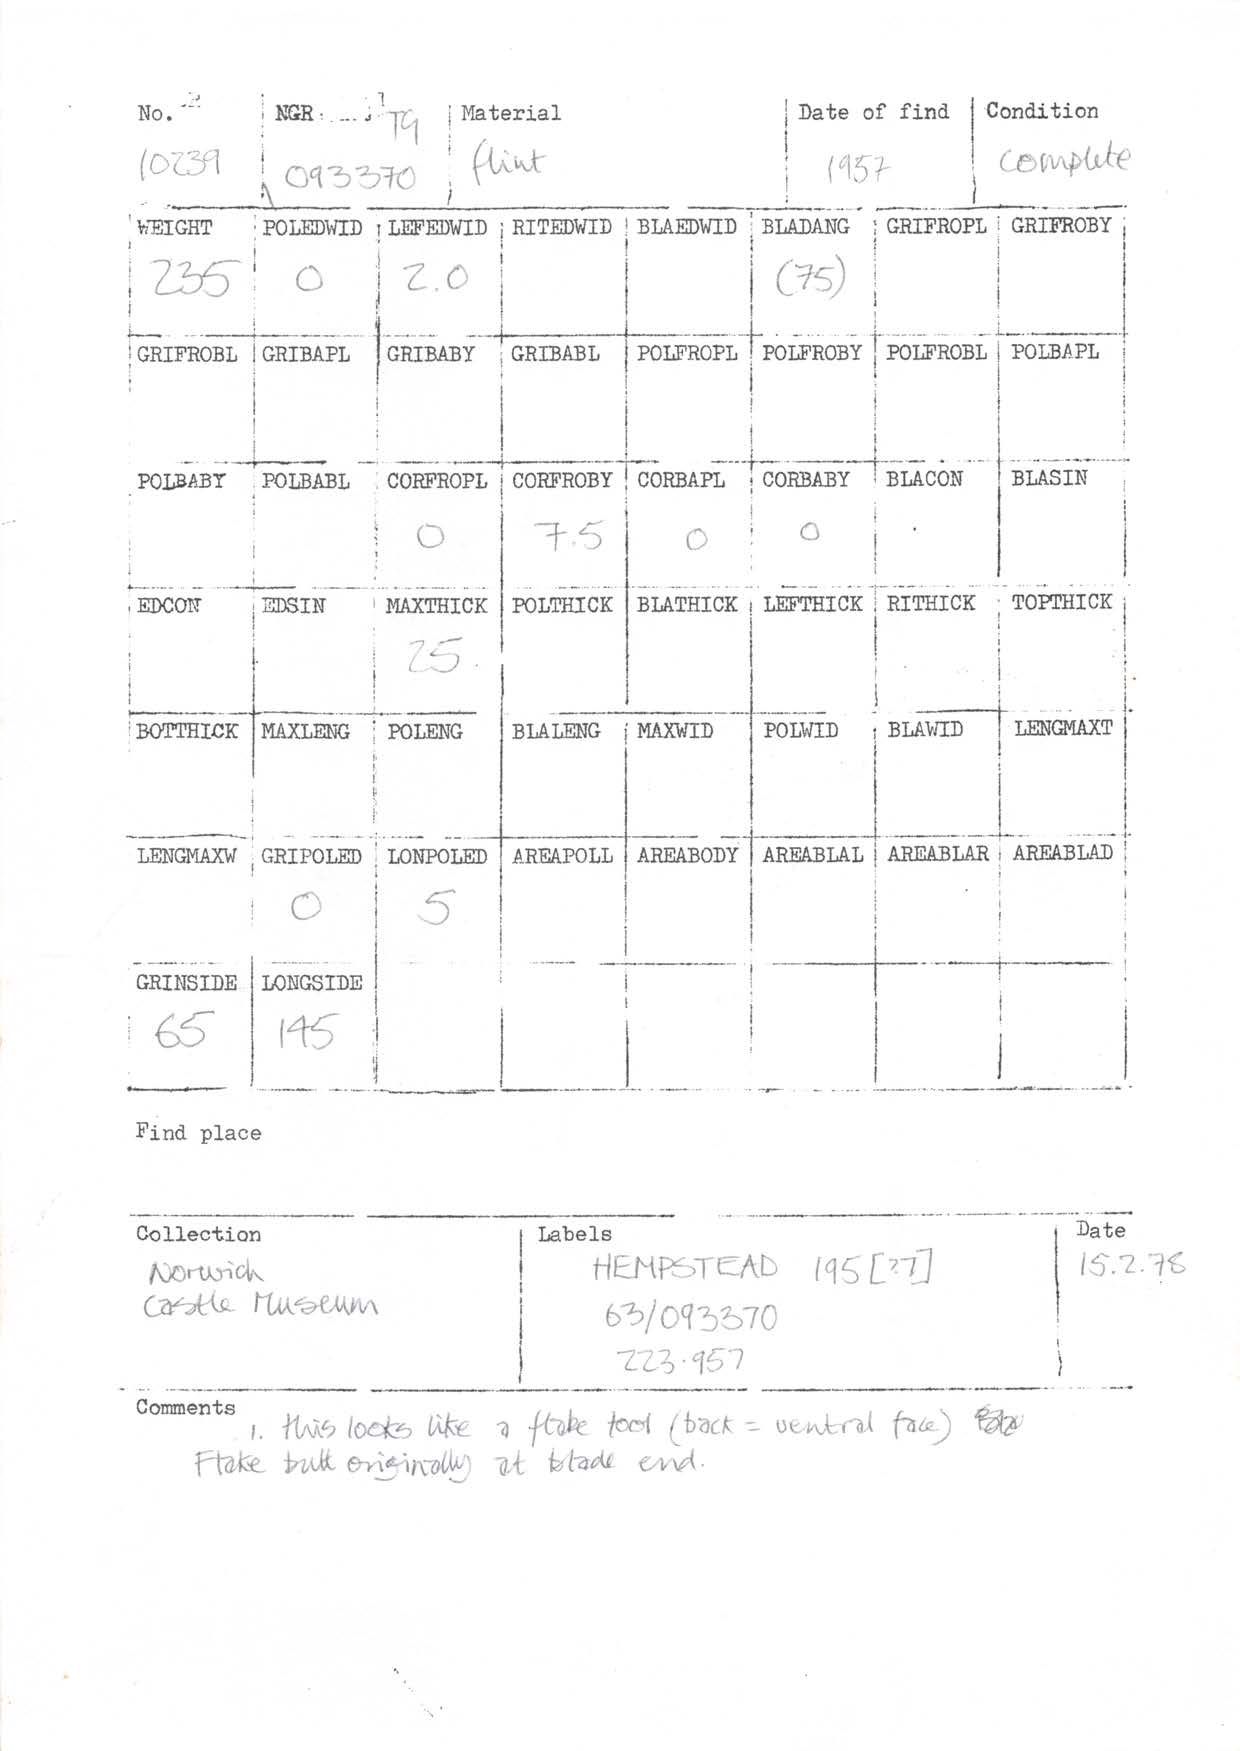 No. NGR TG Material Date of find Condition
10239 093370 flint 1957 complete
WEIGHT POLEDWID LEFEDWID RITEDWID BLAEDWID BLADANG GRIFROPL GRIFROBY
235 0 2.0 (75)
GRIFROBL GRIBAPL GRIBABY GRIBABL POLFROPL POLFROBY POLFROBL POLBAPL
POLBABY POLBABL CORFROPL CORFROBY CORBAPL CORBABY BLACON BLASIN
0 7.5 0 0
EDCON EDSIN MAXTHICK POLTHICK BLATHICK LEFTHICK RITHICK TOPTHICK
25
BOTTHICK MAXLENG POLENG BLALENG MAXWID POLWID BLAWID LENGMAXT
LENGMAXW GRIPOLED LONPOLED AREAPOLL AREABODY AREABLAL AREABLAR AREABLAD
0 5
GRINSIDE LONGSIDE
65 145
Find place
Collection Labels Date
Norwich HEMPSTEAD 195[?7] 15.2.78
Castle Museum 63/093370
223.957
Comments
1. this looks like a flake tool (back = ventral face)
Flake butt originally at blade end.